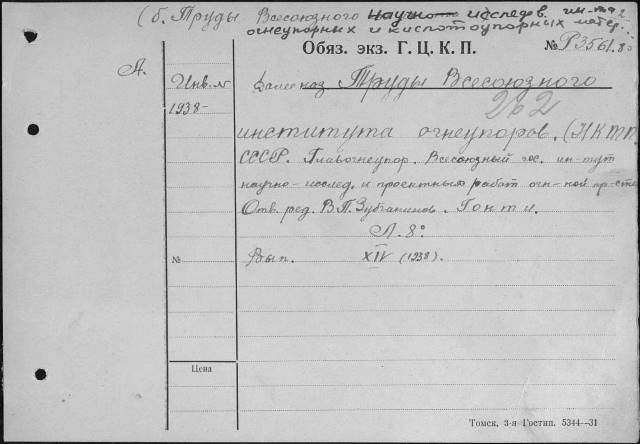 (б. Труды Всесоюзного Научно исследов. ин-та
огнеупорных и кислотоупорных матер...
Обяз. экз. Г. Ц. К. П. № Р3561.8°
А.
Инв. №
1938-
Далее наз Труды Всесоюзного
262
института огнеупоров. (НКТП
СССР. Главогнеупор. Всесоюзный гос. ин-тут
научно-исслед. и проектных работ огн-ной пр-сти
Отв. ред. В.П. Зубчанинов. Гонти.
Л. 8°
№ Вып. XIV (1938).
Цена
Томск, 3-я Гостип. 5344—31